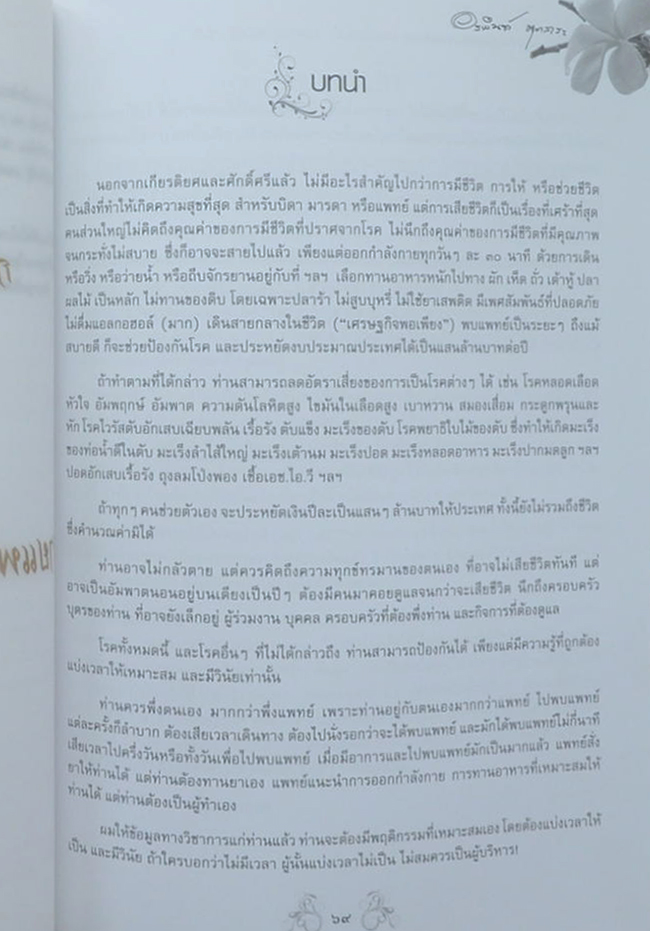 บทนำ
นอกจากเกียรติยศและศักดิ์ศรีแล้ว ไม่มีอะไรสำคัญไปกว่าการมีชีวิต การให้ หรือช่วยชีวิต
เป็นสิ่งที่ทำให้เกิดความสุขที่สุด สำหรับบิดา มารดา หรือแพทย์ แต่การเสียชีวิตก็เป็นเรื่องที่เศร้าที่สุด
คนส่วนใหญ่ไม่คิดถึงคุณค่าของการมีชีวิตที่ปราศจากโรค ไม่นึกถึงคุณค่าของการมีชีวิตที่มีคุณภาพ
จนกระทั่งไม่สบาย ซึ่งก็อาจจะสายไปแล้ว เพียงแต่ออกกำลังกายทุกวันๆ ละ ๓๐ นาที ด้วยการเดิน
หรือวิ่ง หรือว่ายน้ำ หรือถีบจักรยานอยู่กับที่ ฯลฯ เลือกทานอาหารหนักไปทาง ผัก เห็ด ถั่ว เต้าหู้ ปลา
ผลไม้ เป็นหลัก ไม่ทานของดิบ โดยเฉพาะปลาร้า ไม่สูบบุหรี่ ไม่ใช้ยาเสพติด มีเพศสัมพันธ์ที่ปลอดภัย
ไม่ดื่มแอลกอฮอล์ (มาก) เดินสายกลางในชีวิต (“เศรษฐกิจพอเพียง”) พบแพทย์เป็นระยะๆ ถึงแม้
สบายดี ก็จะช่วยป้องกันโรค และประหยัดงบประมาณประเทศได้เป็นแสนล้านบาทต่อปี
ถ้าทำตามที่ได้กล่าว ท่านสามารถลดอัตราเสี่ยงของการเป็นโรคต่างๆ ได้ เช่น โรคหลอดเลือด
หัวใจ อัมพฤกษ์ อัมพาต ความดันโลหิตสูง ไขมันในเลือดสูง เบาหวาน สมองเสื่อม กระดูกพรุนและ
หัก โรคไวรัสตับอักเสบเฉียบพลัน เรื้อรัง ตับแข็ง มะเร็งของตับ โรคพยาธิใบไม้ของตับ ซึ่งทำให้เกิดมะเร็ง
ของท่อน้ำดีในตับ มะเร็งลำไส้ใหญ่ มะเร็งเต้านม มะเร็งปอด มะเร็งหลอดอาหาร มะเร็งปากมดลูก ฯลฯ
ปอดอักเสบเรื้อรัง ถุงลมโป่งพอง เชื้อเอช.ไอ.วี ฯลฯ
ถ้าทุกๆ คนช่วยตัวเอง จะประหยัดเงินปีละเป็นแสนๆ ล้านบาทให้ประเทศ ทั้งนี้ยังไม่รวมถึงชีวิต
ซึ่งคำนวณค่ามิได้
ท่านอาจไม่กลัวตาย แต่ควรคิดถึงความทุกข์ทรมานของตนเอง ที่อาจไม่เสียชีวิตทันที แต่
อาจเป็นอัมพาตนอนอยู่บนเตียงเป็นปีๆ ต้องมีคนมาคอยดูแลจนกว่าจะเสียชีวิต นึกถึงครอบครัว
บุตรของท่าน ที่อาจยังเล็กอยู่ ผู้ร่วมงาน บุคคล ครอบครัวที่ต้องพึ่งท่าน และกิจการที่ต้องดูแล
โรคทั้งหมดนี้ และโรคอื่นๆ ที่ไม่ได้กล่าวถึง ท่านสามารถป้องกันได้ เพียงแต่มีความรู้ที่ถูกต้อง
แบ่งเวลาให้เหมาะสม และมีวินัยเท่านั้น
ท่านควรพึ่งตนเอง มากกว่าพึ่งแพทย์ เพราะท่านอยู่กับตนเองมากกว่าแพทย์ ไปพบแพทย์
แต่ละครั้งก็ลำบาก ต้องเสียเวลาเดินทาง ต้องไปนั่งรอกว่าจะได้พบแพทย์ และมักได้พบแพทย์ไม่กี่นาที
เสียเวลาไปครึ่งวันหรือทั้งวันเพื่อไปพบแพทย์ เมื่อมีอาการและไปพบแพทย์มักเป็นมากแล้ว แพทย์สั่ง
ยาให้ท่านได้ แต่ท่านต้องทานยาเอง แพทย์แนะนำการออกกำลังกาย การทานอาหารที่เหมาะสมให้
ท่านได้ แต่ท่านต้องเป็นผู้ทำเอง
ผมให้ข้อมูลทางวิชาการแก่ท่านแล้ว ท่านจะต้องมีพฤติกรรมที่เหมาะสมเอง โดยต้องแบ่งเวลาให้
เป็น และมีวินัย ถ้าใครบอกว่าไม่มีเวลา ผู้นั้นแบ่งเวลาไม่เป็น ไม่สมควรเป็นผู้บริหาร!
๖๙